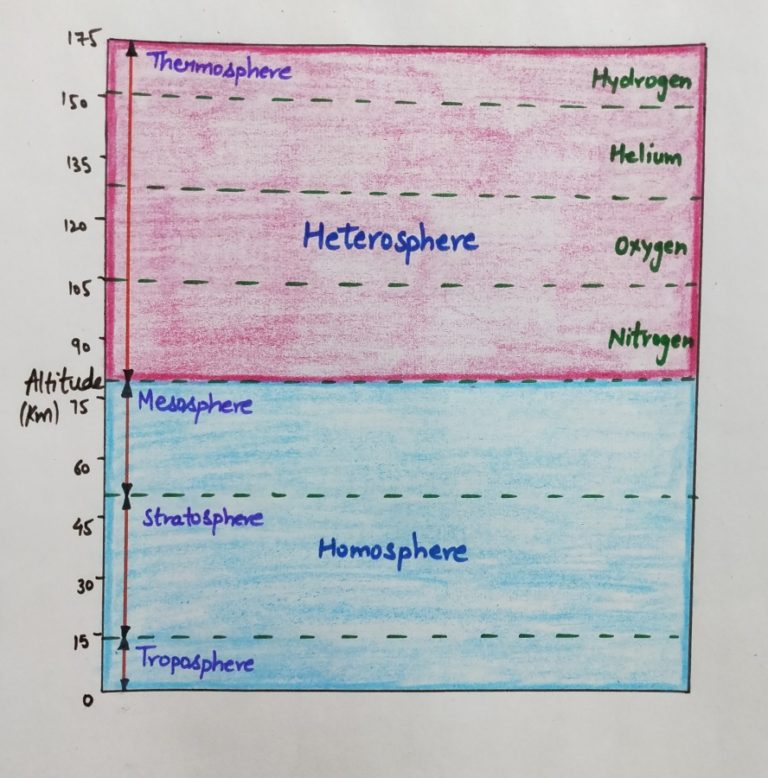 175
Thermosphere
Hydrogen
150
135
Helium
120
Heterosphere
Oxygen
105
90
Nitrogen
Altitude
(Km) 75
Mesosphere
60
Stratosphere
45
Homosphere
30
15
Troposphere
0